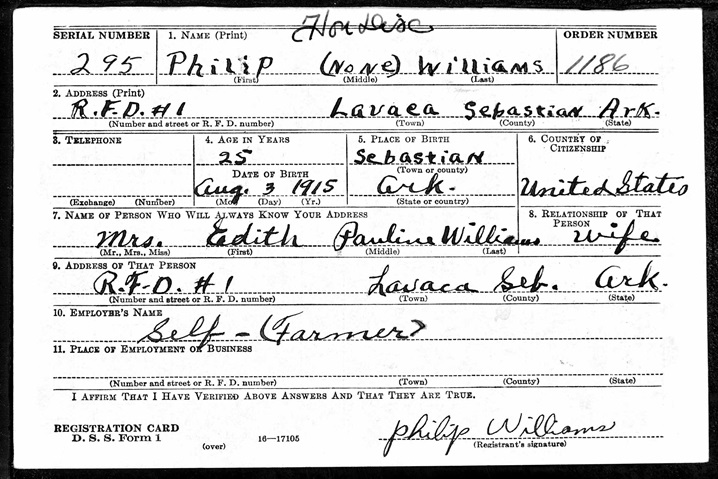 Hon Disc
SERIAL NUMBER 1. NAME (Print) ORDER NUMBER
295 Philip (None) Williams 1186
(First) (Middle) (Last)
2. ADDRESS (Print)
R.F.D. #1 Lavaca Sebastian Ark.
(Number and street or R. F. D. number) (Town) (County) (State)
3. TELEPHONE 4. AGE IN YEARS 5. PLACE OF BIRTH 6. COUNTRY OF CITIZENSHIP
25 Sebastian
(Town or county)
DATE OF BIRTH
Aug. 3 1915 Ark. United States
(Exchange) (Number) (Mo.) (Day) (Yr.) (State or country)
7. NAME OF PERSON WHO WILL ALWAYS KNOW YOUR ADDRESS 8. RELATIONSHIP OF THAT PERSON
Mrs. Edith Pauline Williams wife
(Mr., Mrs., Miss) (First) (Middle) (Last)
9. ADDRESS OF THAT PERSON
R.F.D. #1 Lavaca Seb. Ark.
(Number and street or R. F. D. number) (Town) (County) (State)
10. EMPLOYER'S NAME
Self - (Farmer)
11. PLACE OF EMPLOYMENT OR BUSINESS
(Number and street or R. F. D. number) (Town) (County) (State)
I AFFIRM THAT I HAVE VERIFIED ABOVE ANSWERS AND THAT THEY ARE TRUE.
REGISTRATION CARD
D. S. S. Form 1
(over) 16—17105
Philip Williams
(Registrant's signature)